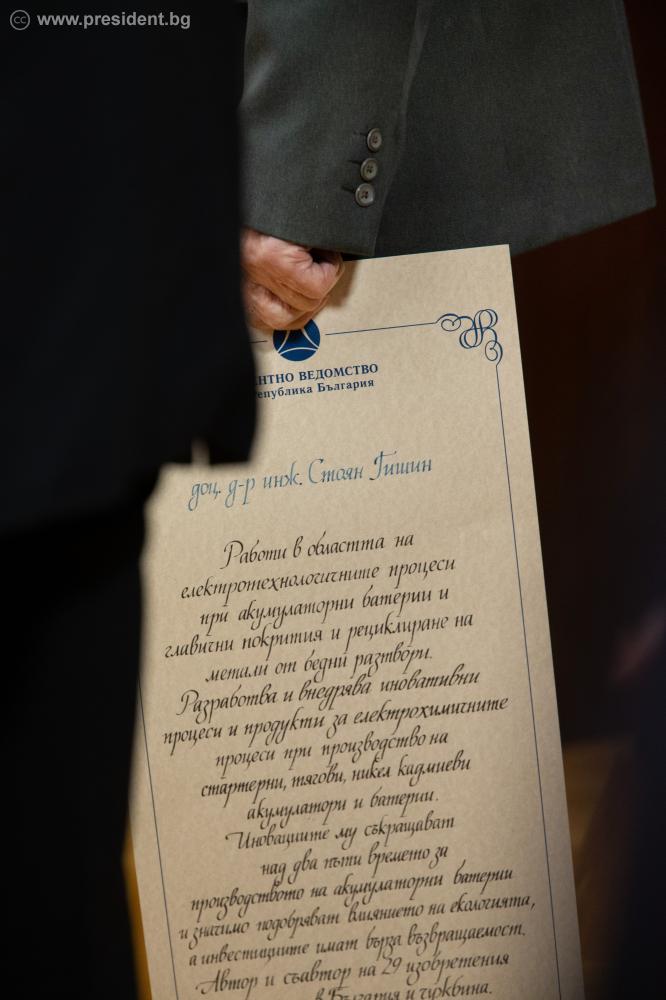 cc www.president.bg
ЕНТНО ВЕДОМСТВО
Република България
доц. д-р инж. Стоян Гишин
Работи в областта на
електротехнологичните процеси
при акумулаторни батерии и
главични покрития и рециклиране на
метали от бедни разтвори.
Разработва и внедрява иновативни
процеси и продукти за електрохимичните
процеси при производство на
стартерни, тягови, никел кадмиеви
акумулатори и батерии.
Иновациите му съкращават
над два пъти времето за
производството на акумулаторни батерии
и значимо подобряват влиянието на екологията,
а инвестициите имат бърза възвращаемост.
Автор и съавтор на 29 изобретения
в България и чужбина.